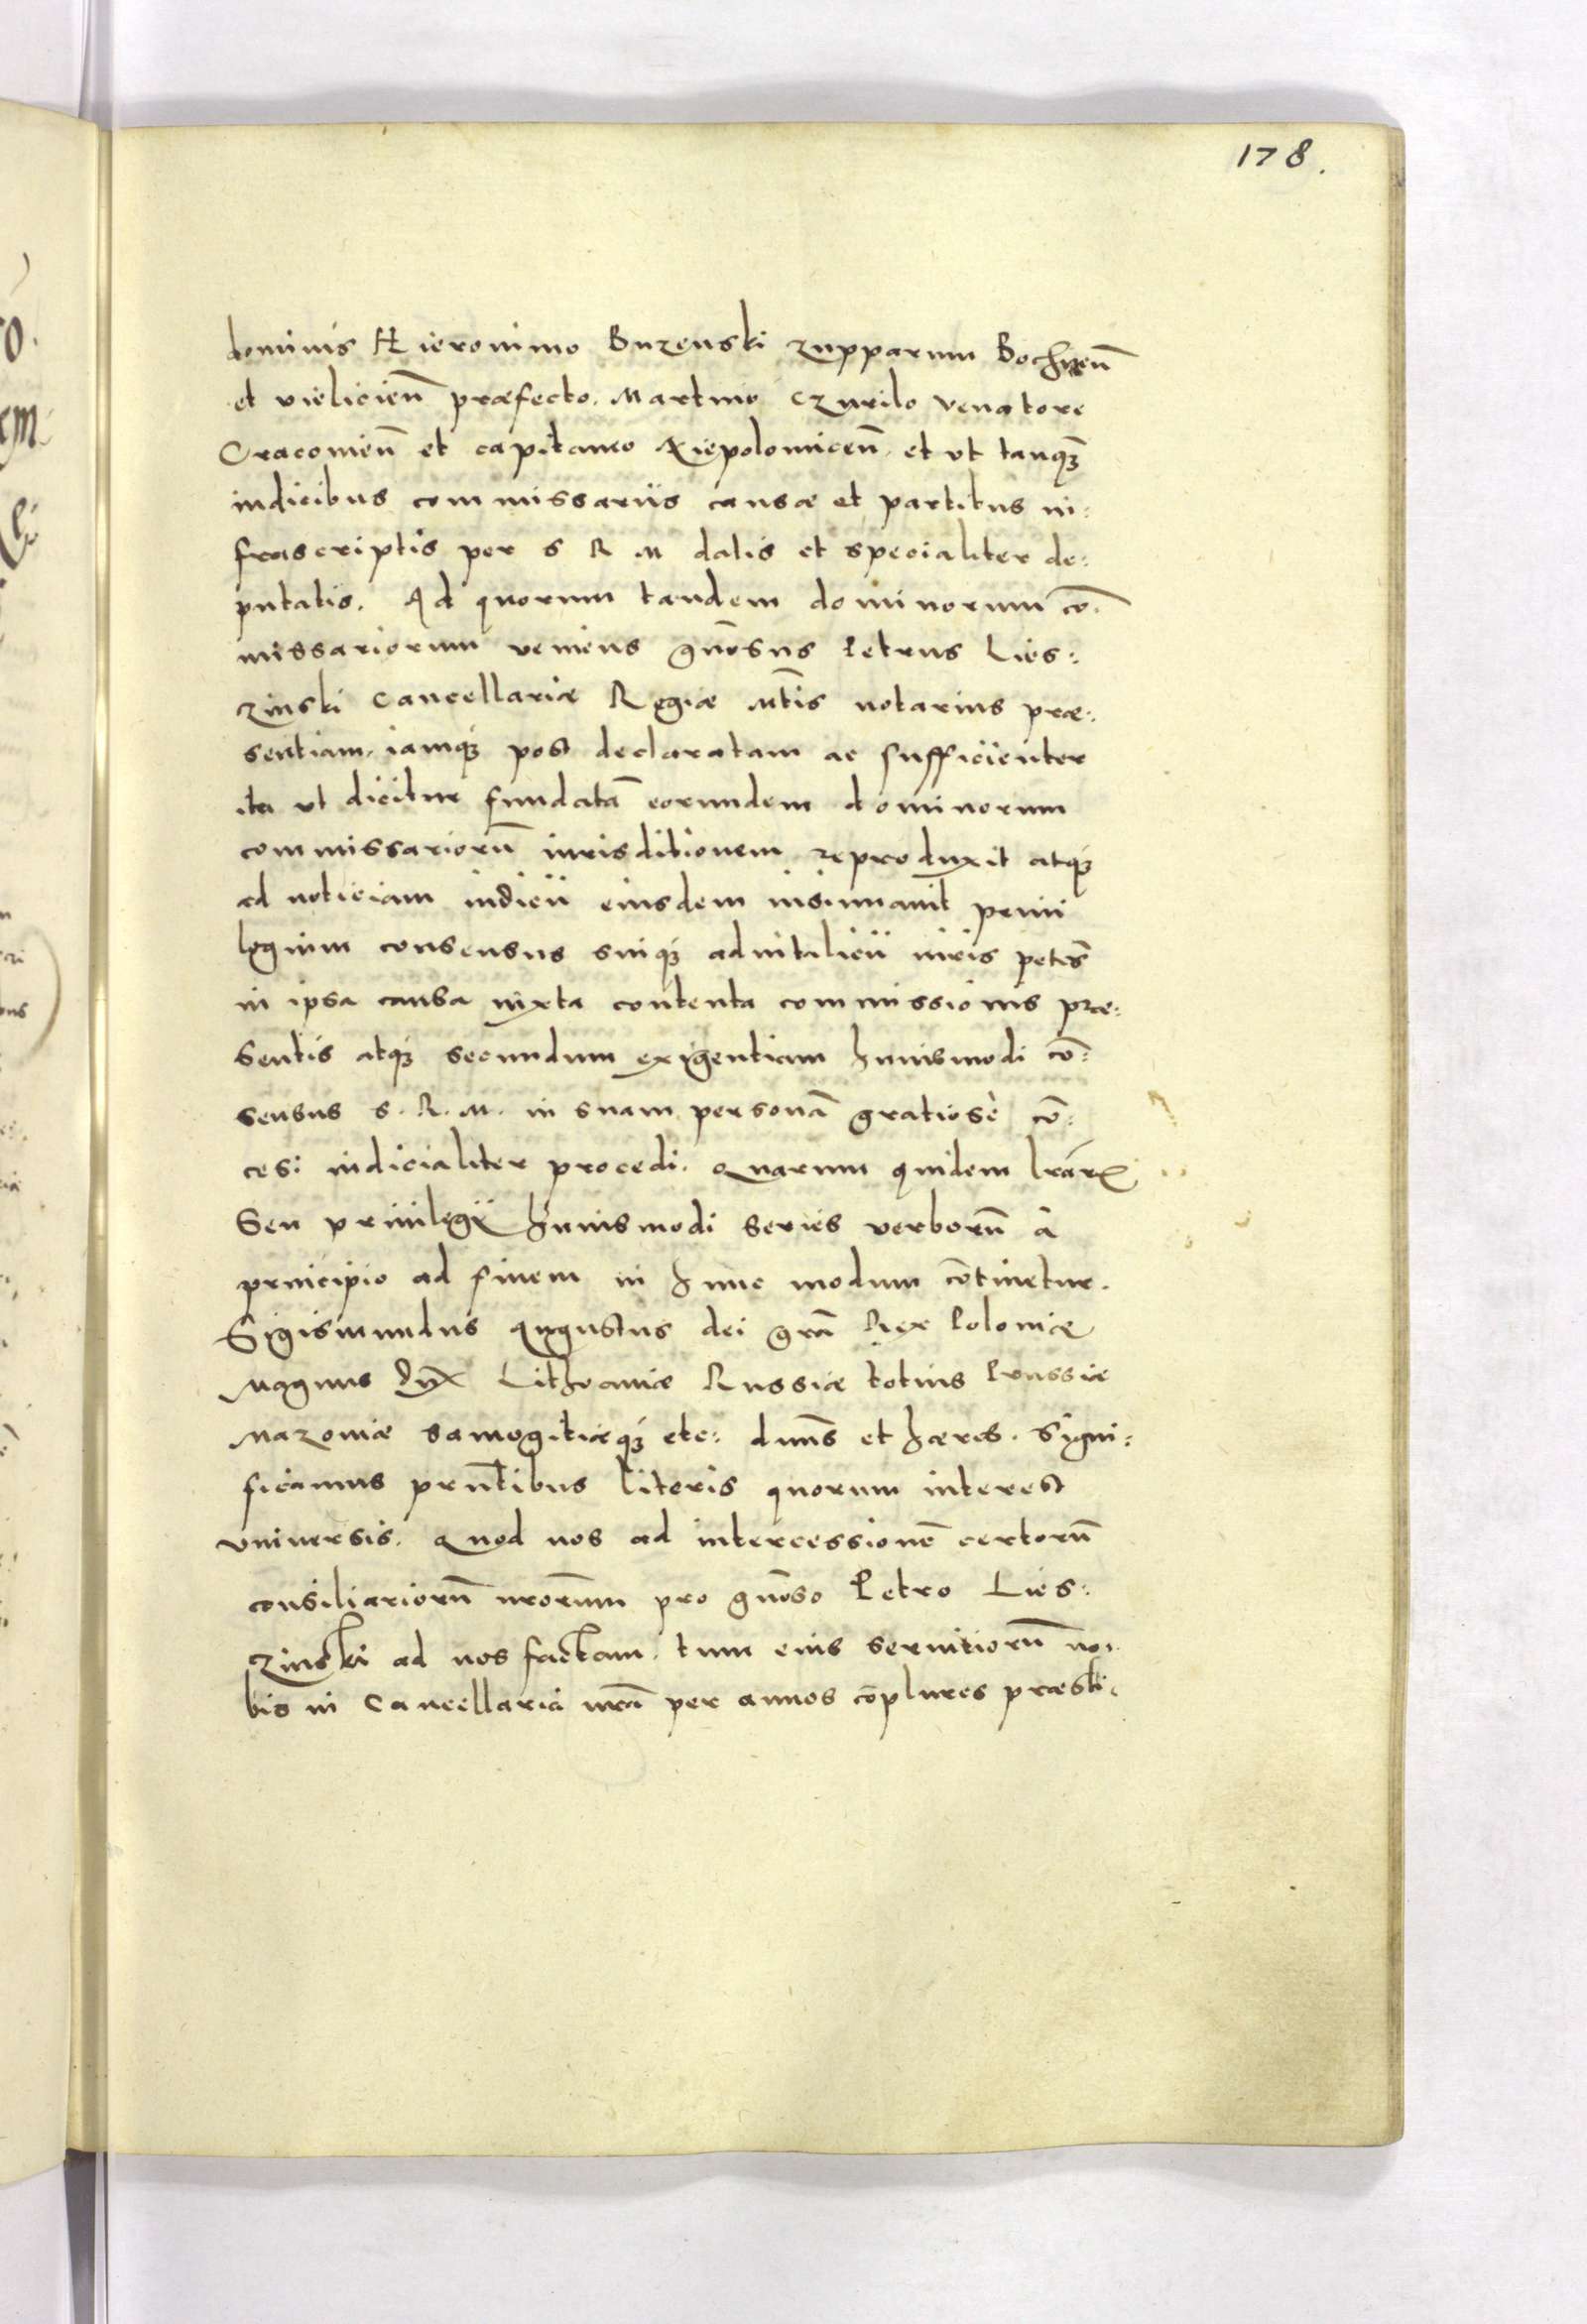 178.
dominis Hieronimo Buzenski zupparum Bochnen̄
et vielicien̄ præfecto. Martino Czurilo venatore
Cracovien̄ et capitaneo Niepolomicen̄. et ut tanq̃ꝫ
iudicibus commissariis causæ et partibus in:
frascriptis per S R M datis et specialiter de:
putatis. Ad quorum tandem dominorum cō:
missariorum veniens gn̄osus Petrus Lies:
zinski Cancellariæ Regiæ Mt̄is notarius præ:
sentiam. iamqꝫ post declaratam ac sufficienter
ita ut dicitur fundatā eorundem dominorum
commissariorū iurisditionem reproduxit atqꝫ
ad noticiam iudicii eiusdem insinuavit privi
legium consensus suiqꝫ advitalicii iuris petēs
in ipsa causa iuxta contenta commissionis præ:
sentis atqꝫ secundum exigentiam huiusmodi cō:
sensus S. R. M. in suam personā gratiosè cō:
cesi iudicialiter procedi. Quarum quidem l̄rarꝝ
Seu privilegii huiusmodi series verborū à
principio ad finem in hunc modum cōtinetur.
Sigismundus Augustus dei gr̄a Rex Poloniæ
Magnus dux Lithvaniæ Russiæ totius Prussiæ
Mazoviæ Samogitiæqꝫ etc: dn̄us et hæres. Signi:
ficamus prn̄tibus literis quorum interest
universis. Quod nos ad intercessionē certorū
consiliariorū nr̄orum pro gn̄oso Petro Lies:
zinski ad nos factam. tum eius servitiorū no:
bis in Cancellaria nr̄a per annos cōplures præsti: